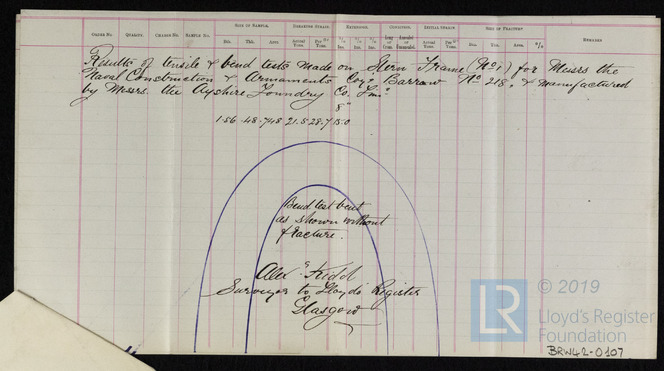 ORDER No. QUALITY. CHARGE No. SAMPLE No. SIZE OF SAMPLE. BREAKING STRAIN. EXTENSION. CONDITION. INITIAL STRAIN. SIZE OF FRACTURE °/o REMARKS
Bth. Tht. Area. Actual Tons. Per □" Tons. Actual Tons. Per □" Tons. Bth. Tht. Area.
Results of tensile & bend tests made on Stern Frame (No 1) for Messrs the
Naval Construction & Armaments Coy. Barrow No 218, & manufactured
by Messrs the Ayshire Foundry Co. Lim.
8"
1.56 .48 .748 21.5 28.7 15.0
Bend test bent
as shown without
fracture.
Alex. Kidd
Surveyor to Lloyds Register
Glasgow
© 2019
LR
Lloyd's Register
Foundation
BRW42-0107